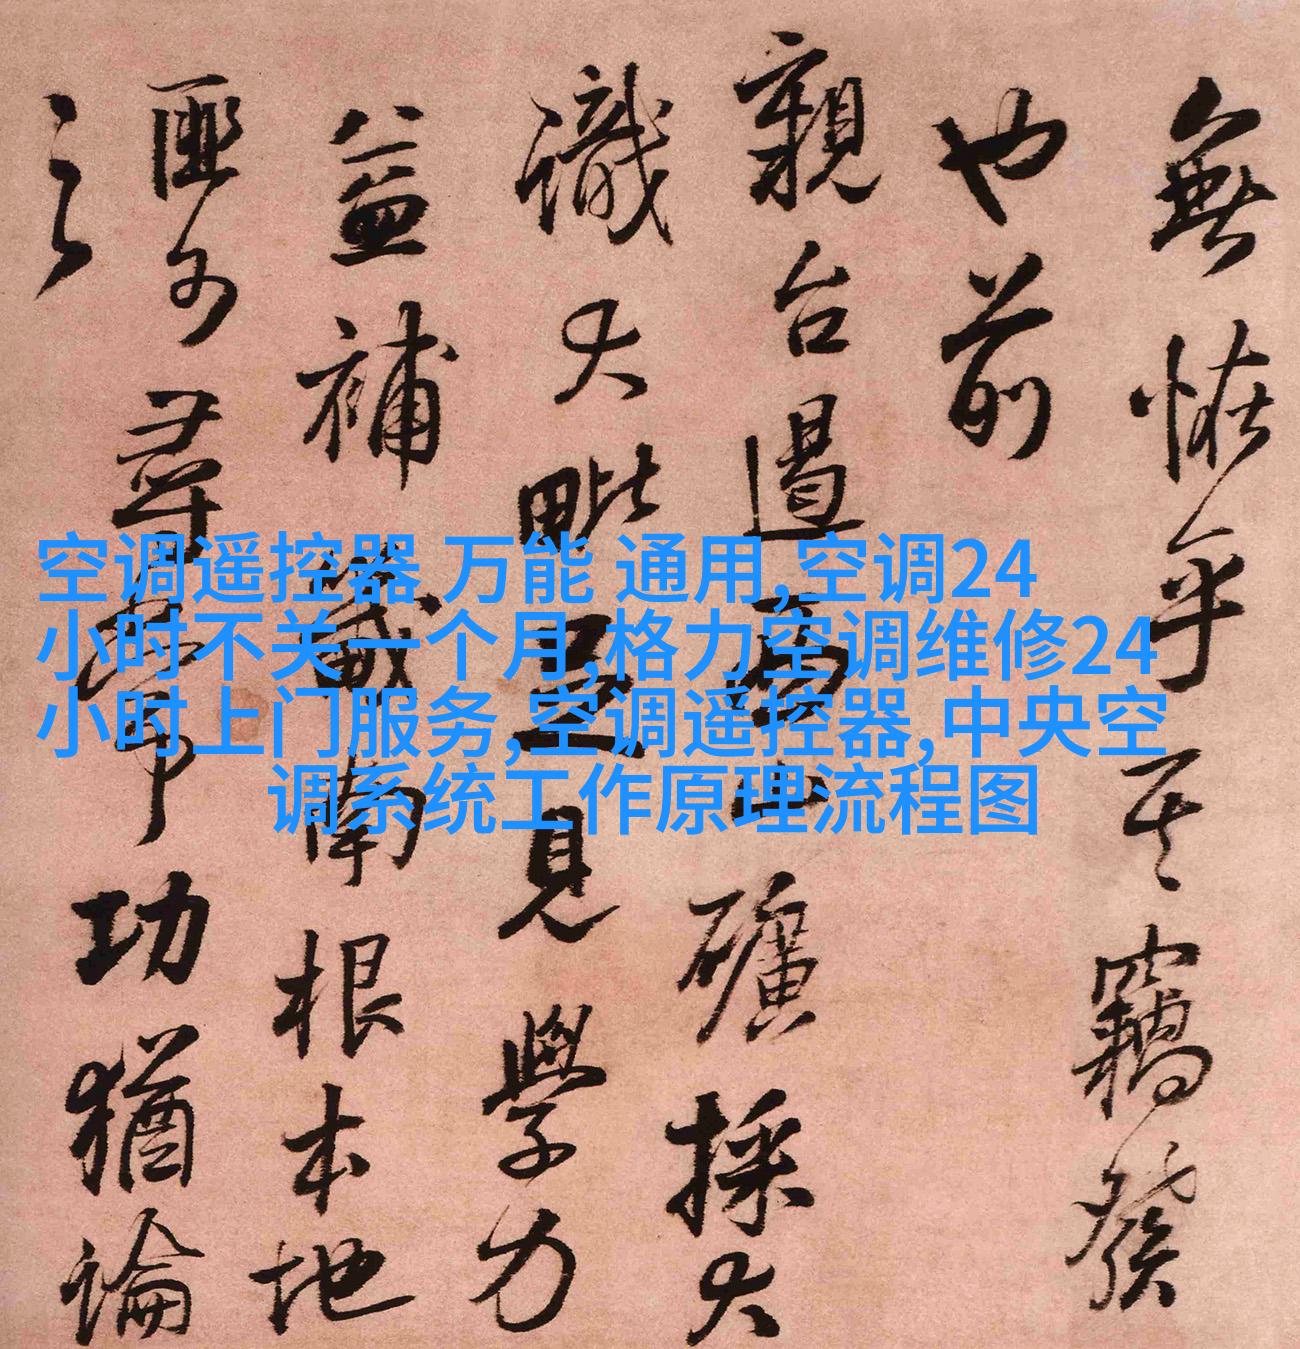 空调遥控器 万能 通用,空调24
小时不关一个月,格力空调维修24
小时上门服务,空调遥控器,中央空
调系统工作原理流程图
無怪乎其竊發
也前
親台為礦採大
識大毗見學力
益補南根本地
匪可尋常功猶論
之